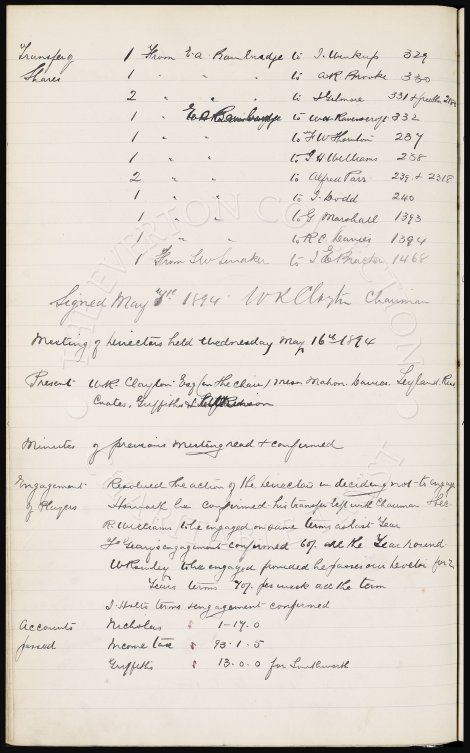 Transferg 1 From E.A. Bainbridge to J. 329
Shares 1 " " to A R Brooke 330
2 " " to Gilmore 331 +
1 " E A Bainbridge to W H Ravenscroft 332
1 " " to F W Thornton 237
1 " " to G H Williams 238
2 " " to Alfred Parr 239 + 2318
1 " " to J. Dodd 240
1 " " to G Marshall 1393
1 " " to R C Davies 1394
1 From to J E 1468
Signed May 1894 W R Clayton Chairman
Meeting of Directors held Wednesday May 16th 1894
Present W.R. Clayton Esq (in the chair) Messrs Mahon. Davies. Leyland.
Coates, Griffiths &
Minutes of previous meeting read + confirmed
Engagement Resolved the action of the Directors in deciding not to engage
of Players be confirmed his transfer left with Chairman &
R Williams to be engaged on same terms as last Year
engagement confirmed 60/. all the Year round
W to be engaged provided he passes our Doctor for 2
Years terms 70/. per week all the term
J. Holts terms & engagement confirmed
Accounts Nicholas 1-17.0
passed Income tax 93.1.5
Griffiths 13.0.0 for Southworth
THE EVERTON COLLECTION